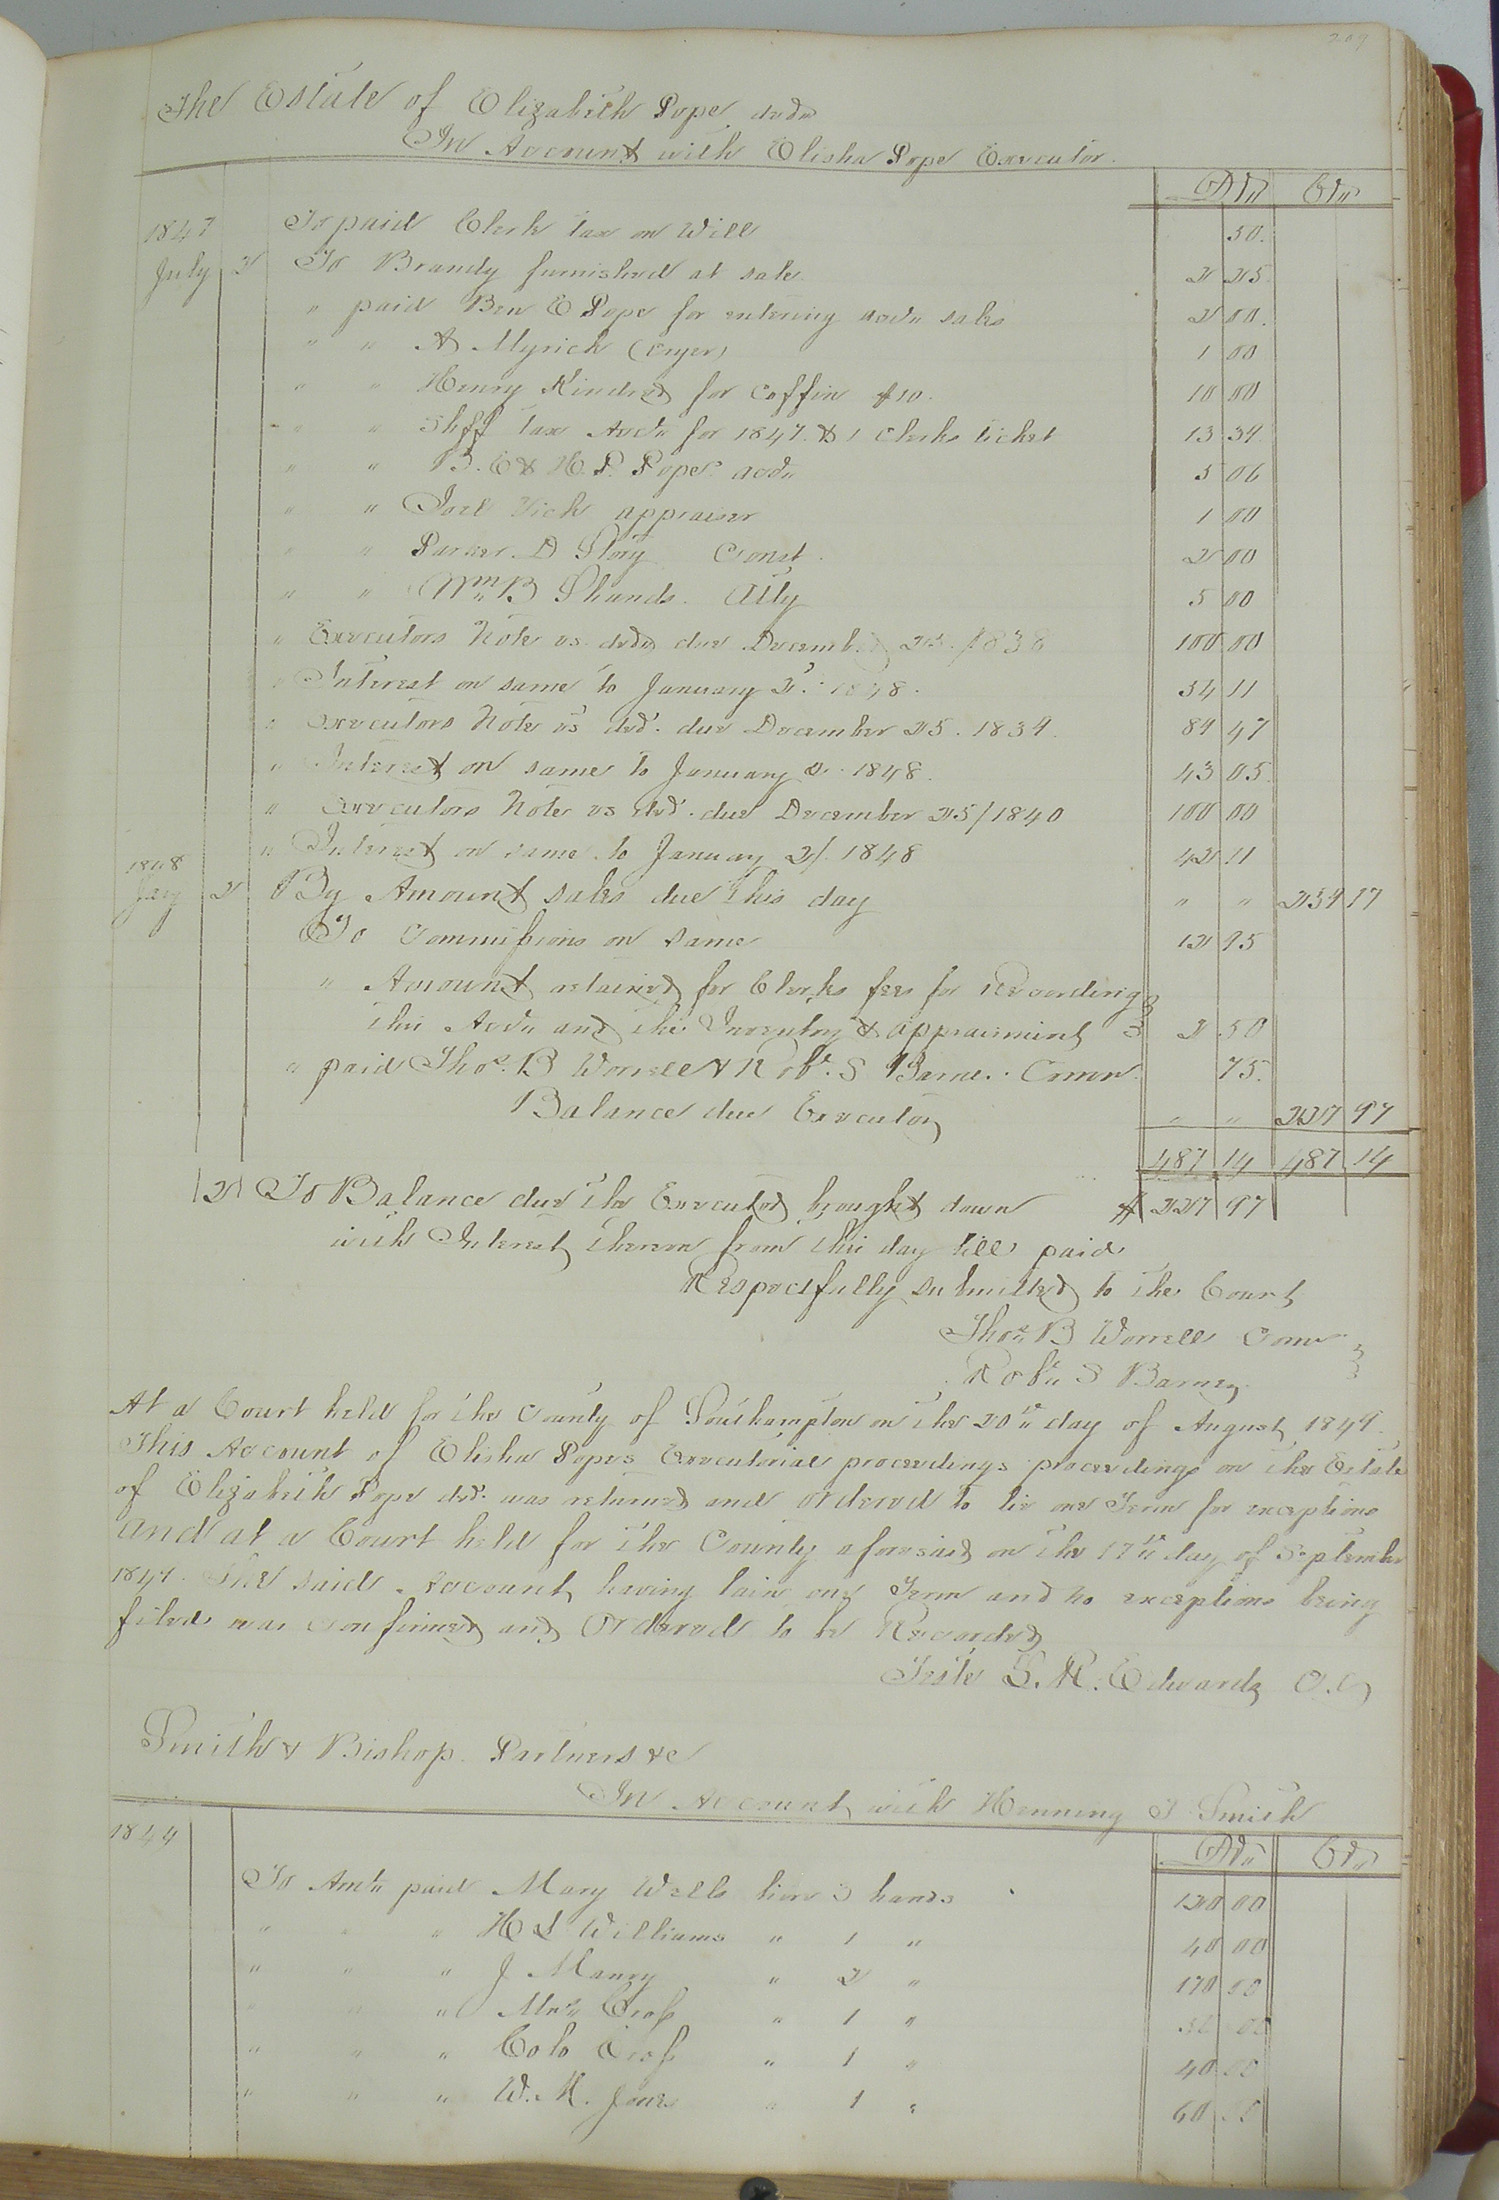 209
The Estate of Elizabeth Pope decd
In Account with Elisha Pope Executor.
Dr Cr
1847 To paid Clerk tax on Will 50.
July 2 To Brandy furnished at sale 2 25
" paid Ben E Pope for entering acct sales 2 00.
" " A Myrick (Cryer) 1 00
" " Henry Kindred for Coffin $10. 10 00
" " Shff tax Acct for 1847. & 1 Clerks ticket 13 34
" " B. E & H. P. Popes acct 5 06
" " Joel Vick appraiser 1 00
" " Parker. D Story Const. 2 00
" " Wm B Shands. Atty 5 00
" Executors Note vs. decd due Decemb. 25. /1838 100 00
" Interest on same to January 2. 1848. 54 11
" Executors Note vs decd. due December 25. 1839. 89 47
" Interest on same to January 2. 1848. 43 05.
" Executors Note vs decd. due December 25/1840 100 00
" Interest on same to January 2/. 1848 42 11
1848
Jany 2 By Amount sales due this day " " 259 17
To Commissions on same 12 95
" Amount retained for Clerks fees for Recording
this Acct and the Inventory & appraisment 2 50
" paid Thos. B Worrell & Robt. S Barne. Comr. 75.
Balance due Executor " " 227 97
487 14 487 14
2 To Balance due the Executor brought down $ 227 97
with Interest thereon from this day till paid
Respectfully submitted to the Court
Thos B Worrell Comr
Robt S Barnes
At a Court held for the County of Southampton on the 20th day of August 1849.
This Account of Elisha Popes Executorial proceedings proceedings on the Estate
of Elizabeth Pope decd. was returned and ordered to lie one Term for exceptions
And at a Court held for the County aforesaid on the 17th day of September
1849. The said Account having lain one Term and no exceptions being
filed was confirmed and Ordered to be Recorded
Teste L. R. Edwards C.C
Smith & Bishop Partners &c
In Account with Henning T Smith
Dr Cr
1844
To Amt paid Mary Wells hire 3 hands 120 00
" " " H L Williams " 1 " 40 00
" " " J Maney " 2 " 170 00
" " " Mrs Cross " 1 "
" " " Colo Cross " 1 " 40 00
" " " W. M. Jones " 1 " 60 00